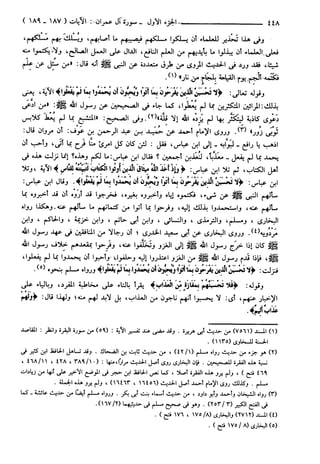 ٤٤٨ الجزء الأول ـ سورة آل عمران: الآيات (١٨٧ ـ ١٨٩)
وفى هذا تحذير للعلماء أن يسلكوا مسلكهم فيصيبهم ما أصابهم، ويُسْلَكُ بهم مَسْلكهم،
فعلى العلماء أن يبذلوا ما بأيديهم من العلم النافع، الدال على العمل الصالح، ولا يكتموا منه
شيئا، فقد ورد فى الحديث المروى من طرق متعددة عن النبى ﷺ أنه قال: «من سئل عن عِلْم
فكَتَمه ألْجِم يوم القيامة بلِجَامٍ من نار» (١).
وقوله تعالى: ﴿لا تَحْسَبَنَّ الَّذِينَ يَفْرَحُونَ بِمَا أَتَوْا وَّيُحِبُّونَ أَن يُحْمَدُوا بِمَا لَمْ يَفْعَلُوا﴾ الآية، يعنى
بذلك: المرائين المتكثرين بما لم يُعطَوا، كما جاء فى الصحيحين عن رسول الله ﷺ: «من ادّعَى
دَعْوى كاذبة لِيتَكَثَّر بها لم يَزِده الله إلا قِلَّة» (٢). وفى الصحيح: «المتشبع بما لم يُعْطَ كلابس
ثَوْبَى زُور» (٣). وروى الإمام أحمد عن حُميد بن عبد الرحمن بن عَوف: أن مروان قال:
اذهب يا رافع ـ لبوابه ـ إلى ابن عباس، فقل: لئن كان كل امرئ منَّا فَرح بما أتَى، وأحب أن
يحمد بما لم يفعل ـ معذَّباً، لنُعذبن أجمعين؟ فقال ابن عباس: ما لكم وهذه؟ إنما نزلت هذه فى
أهل الكتاب، ثم تلا ابن عباس: ﴿وَإِذْ أَخَذَ اللَّهُ مِيثَاقَ الَّذِينَ أُوتُوا الْكِتَابَ لَتُبَيِّنُنَّهُ لِلنَّاسِ﴾ الآية، وتلا
ابن عباس: ﴿لا تَحْسَبَنَّ الَّذِينَ يَفْرَحُونَ بِمَا أَتَوْا وَّيُحِبُّونَ أَن يُحْمَدُوا بِمَا لَمْ يَفْعَلُوا﴾. وقال ابن عباس:
سألهم النبى ﷺ عن شىء، فكتموه إياه وأخبروه بغيره، فخرجوا قد أرَوْه أن قد أخبروه بما
سألهم عنه، واستحمدوا بذلك إليه، وفرحوا بما أتوا من كتمانهم ما سألهم عنه. وهكذا رواه
البخارى، ومسلم، والترمذى، والنسائى، وابن أبى حاتم، وابن خزيمة، والحاكم، وابن
مردويه (٤). وروى البخارى عن أبى سعيد الخدرى؛ أن رجالا من المنافقين فى عهد رسول الله
ﷺ كان إذا خرج رسول الله ﷺ إلى الغزو وتخلَّفوا عنه، وفرحوا بمقعدهم خلاف رسول الله
ﷺ، فإذا قدم رسول الله ﷺ من الغزو اعتذروا إليه وحلفوا وأحبوا أن يحمدوا بما لم يفعلوا،
فنزلت: ﴿لا تَحْسَبَنَّ الَّذِينَ يَفْرَحُونَ بِمَا أَتَوْا وَّيُحِبُّونَ أَن يُحْمَدُوا بِمَا لَمْ يَفْعَلُوا﴾ ورواه مسلم بنحوه (٥).
وقوله: ﴿فَلا تَحْسَبَنَّهُم بِمَفَازَةٍ مِّنَ الْعَذَابِ﴾ يقرأ بالتاء على مخاطبة المفرد، وبالياء على
الإخبار عنهم، أى: لا يحسبوا أنهم ناجون من العذاب، بل لابد لهم منه؛ ولهذا قال: ﴿وَلَهُمْ
عَذَابٌ أَلِيمٌ﴾.
(١) المسند (٧٥٦١) من حديث أبى هريرة. وقد مضى عند تفسير الآية: (٥٩) من سورة البقرة وانظر: المقاصد
الحسنة للسخاوى (١١٣٥).
(٢) هو جزء من حديث رواه مسلم (١ / ٤٢)، من حديث ثابت بن الضحاك. وقد تساهل الحافظ ابن كثير فى
نسبة هذه الفقرة للصحيحين. فإن البخارى روى أصل الحديث مرارًا، منها: (١٠ / ٣٨٩، ٤٢٨، ١١ / ٤٦٨،
٤٦٩ فتح)، ولم يرو هذه الفقرة أصلا، كما نص الحافظ ابن حجر فى الموضع الأخير على أنها من زيادات
مسلم. وكذلك روى الإمام أحمد أصل الحديث (١٦٤٥٦، ١٦٤٦٣)، ولم يرو هذه الجملة.
(٣) رواه الشيخان وأحمد وأبو داود، من حديث أسماء بنت أبى بكر. ورواه مسلم أيضاً من حديث عائشة ـ كما
فى الفتح الكبير (٣ / ٢٥٣). وهو فى صحيح مسلم فى حديثيهما (٢ / ١٦٧).
(٤) المسند (٢٧١٢) والبخارى (٨ / ١٧٥، ١٧٦ فتح).
(٥) البخارى (٨ / ١٧٥ فتح).